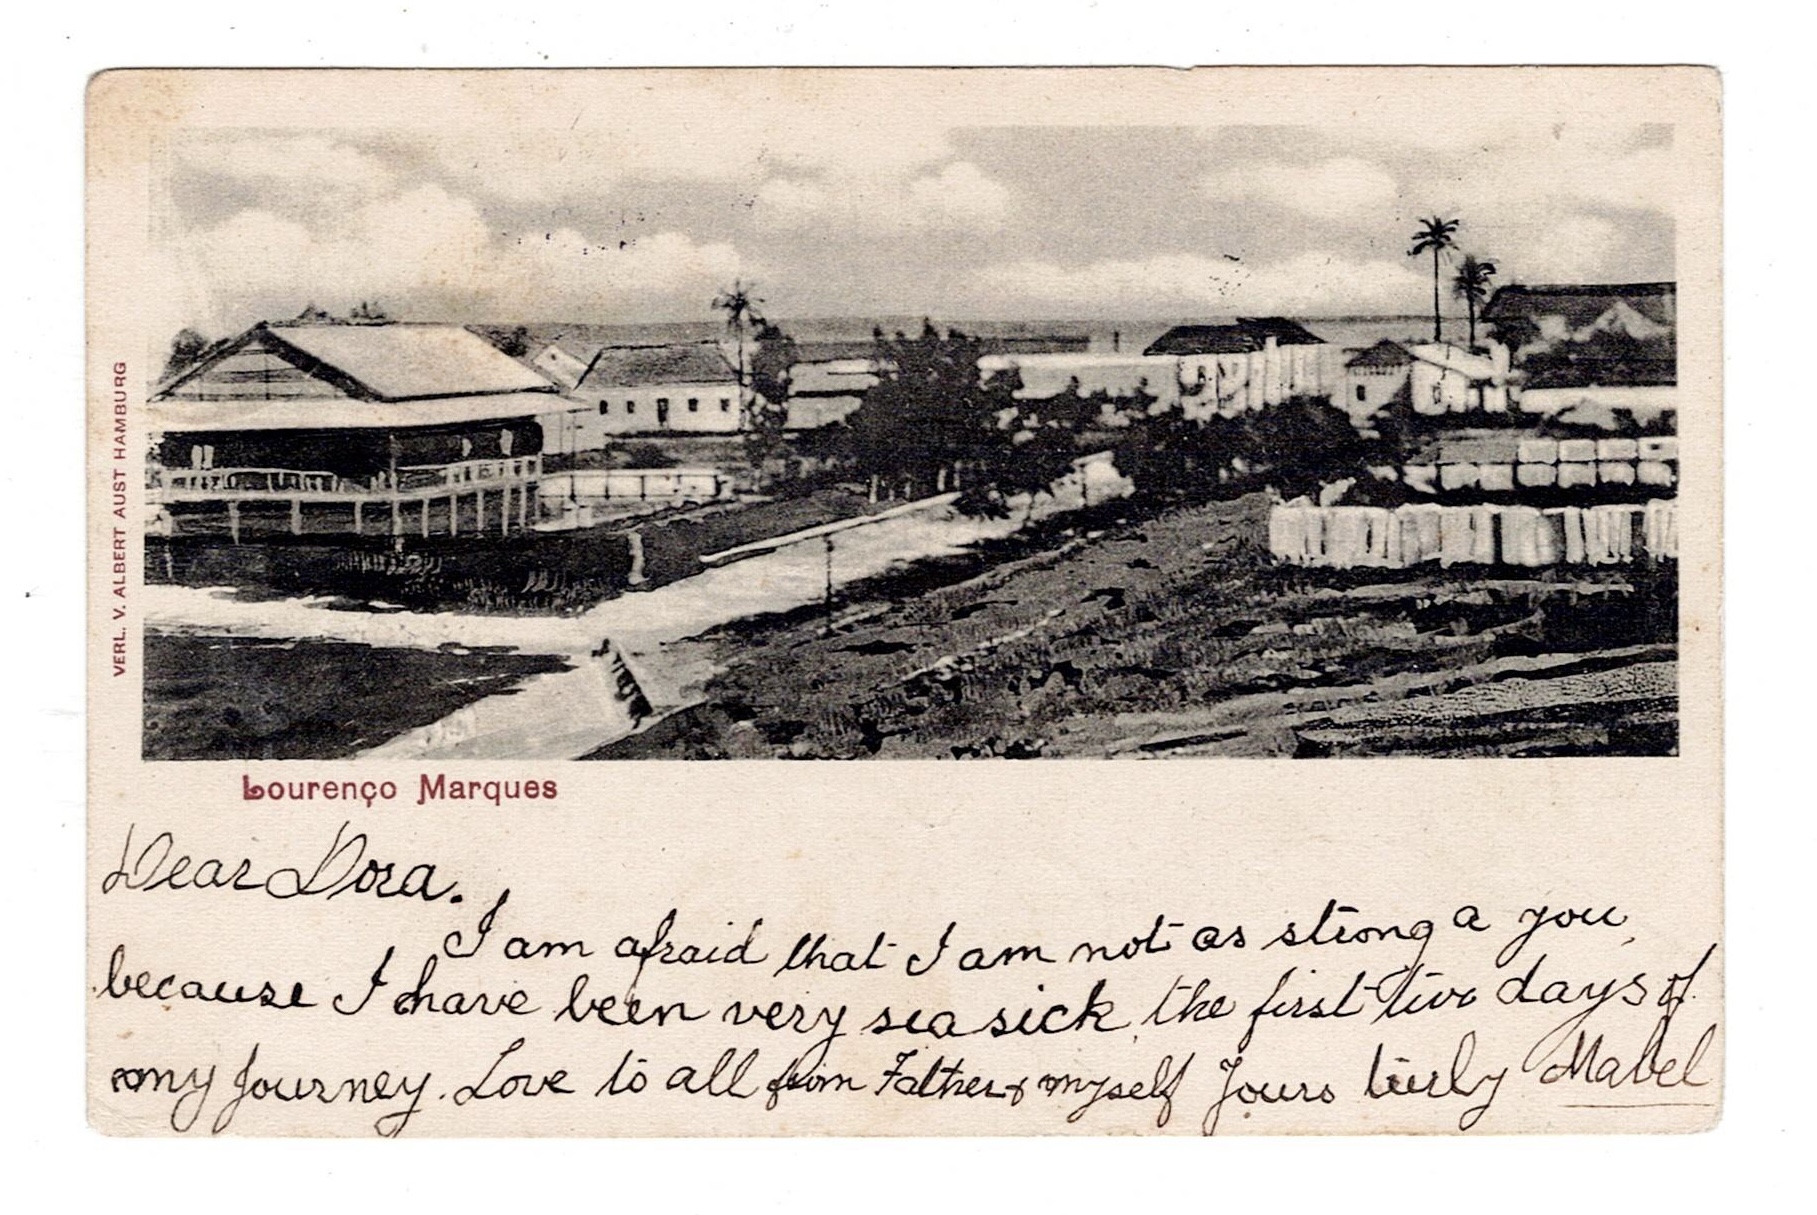 VERL. V. ALBERT AUST HAMBURG
Lourenço Marques
Dear Dora.
I am afraid that I am not as strong a you,
because I have been very sea sick, the first two days of
my journey. Love to all from Father & myself Yours truly Mabel